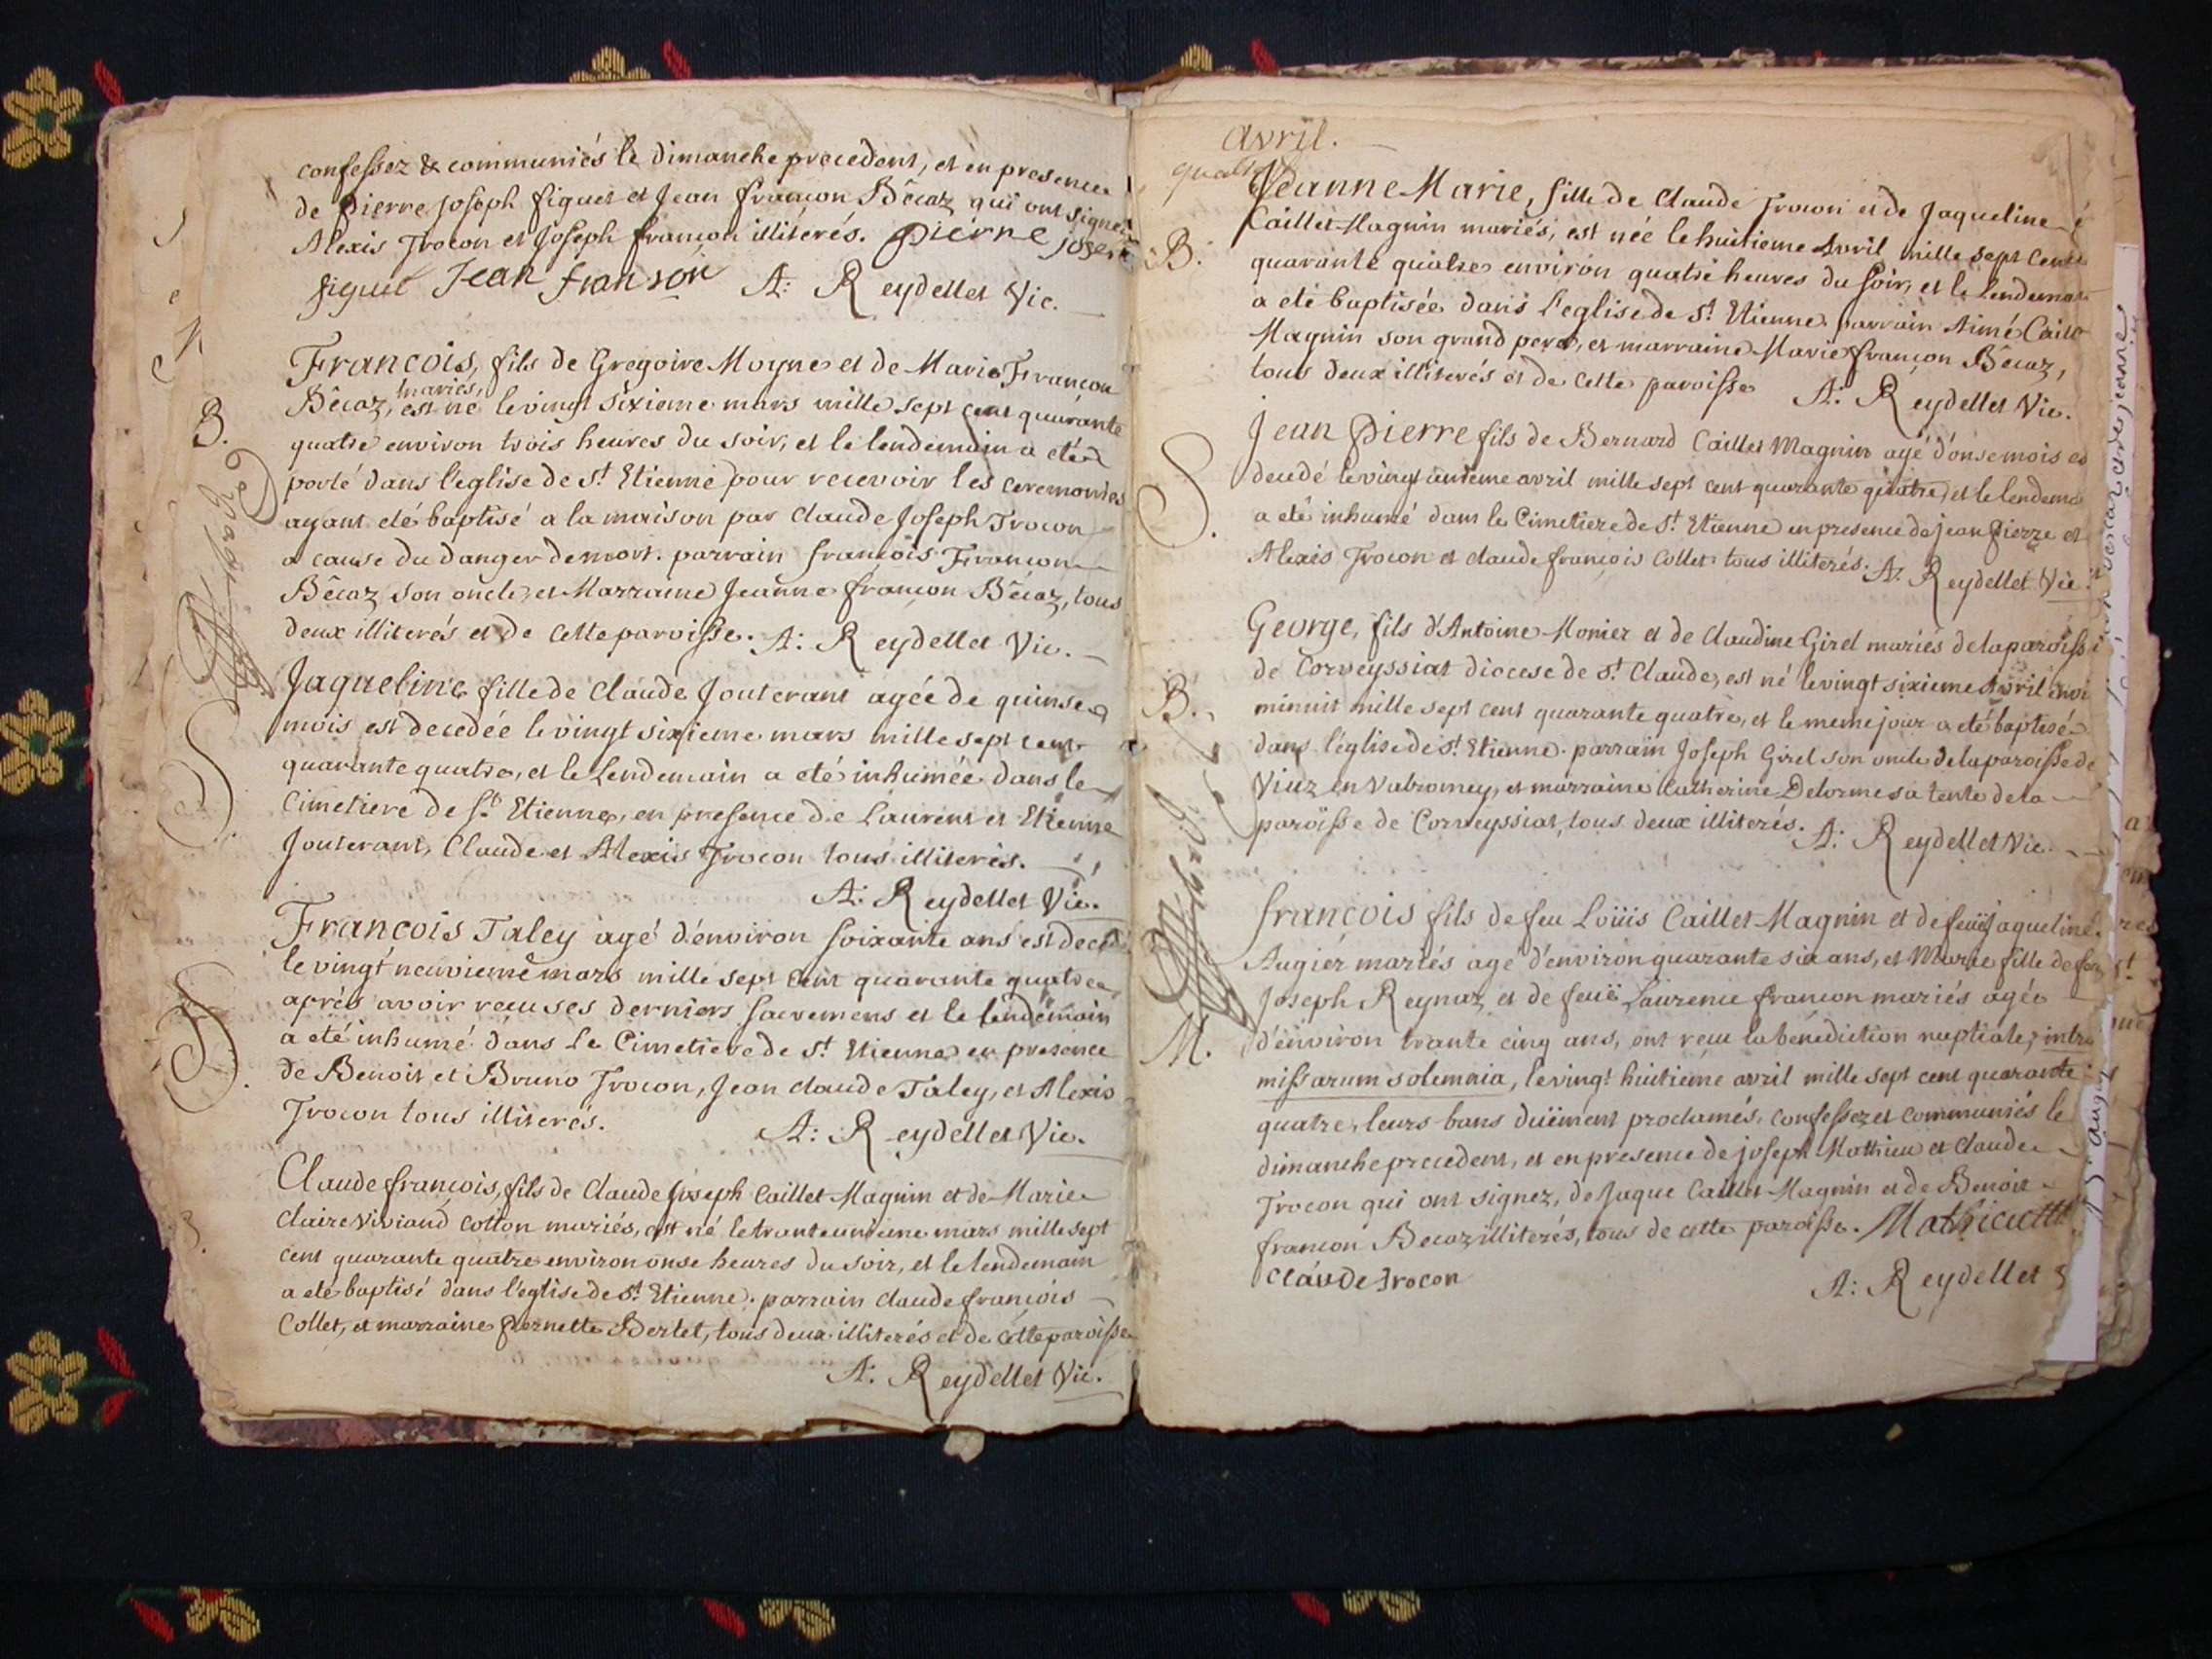 confessez & communiés le dimanche precedent, et en presence
de pierre joseph figuet et jean françon Bêcaz qui ont signez
Alexis Trocon et Joseph françon illiterés. pierre josep
figuet Jean franson A: Reydellet Vic.
B.
François, fils de Gregoire Moyne et de Marie Françon
mariés,
Bêcaz, est né le vingt sixieme mars mille sept cent quarante
quatre environ trois heures du soir, et le lendemain a eté
porté dans l'eglise de St Etienne pour recevoir les ceremonies
ayant eté baptisé a la maison par Claude Joseph Trocon
a cause du danger de mort. parrain françois Françon
Bêcaz son oncle, et Marraine Jeanne françon Bêcaz, tous
deux illiterés et de cette paroisse. A: Reydellet Vic.
S.
Jaqueline fille de Claude Jouterant agée de quinse
mois est decedée le vingt sixieme mars mille sept cent
quarante quatre, et le lendemain a eté inhumée dans le
Cimetiere de St Etienne, en presence de Laurent et Etienne
Jouterant, Claude et Alexis Trocon tous illiterés.
A: Reydellet Vic.
S.
François Taley agé d'environ soixante ans est decedé
le vingt neuvieme mars mille sept cent quarante quatre
aprés avoir recu ses derniers sacremens et le lendemain
a eté inhumé dans le Cimetiere de St Etienne en presence
de Benoit et Bruno Trocon, Jean Claude Taley, et Alexis
Trocon tous illiterés.
A: Reydellet Vic.
B.
Claude françois, fils de Claude Joseph Caillet-Magnin et de Marie
Claire Viviand Cotton mariés, est né le trente unieme mars mille sept
cent quarante quatre environ onse heures du soir, et le lendemain
a eté baptisé dans l'eglise de St Etienne. parrain Claude françois
Collet, et marraine pernette Bertet, tous deux illiterés et de cette paroisse
A: Reydellet Vic.
avril.
B.
Jeanne Marie, fille de Claude Trocon et de Jaqueline
Caillet-Magnin mariés, est née le huitieme Avril mille sept cent
quarante quatre environ quatre heures du soir, et le lendemai
a eté baptisée dans l'eglise de St Etienne parrain Aimé Caille
Magnin son grand pere, et marraine Marie françon Bêcaz,
tous deux illiterés et de cette paroisse A: Reydellet Vic.
S.
Jean Pierre fils de Bernard Caillet Magnin agé d'onse mois est
decedé le vingt unieme avril mille sept cent quarante quatre, et le lendema
a eté inhumé dans le Cimetiere de St Etienne en presence de jean Pierre et
Alexis Trocon et Claude françois Collet tous illiterés. A: Reydellet Vic.
B.
George, fils d'Antoine Monier et de Claudine Girel mariés de la paroiss
de Corveyssiat diocese de St Claude, est né le vingt sixieme Avril envi
minuit mille sept cent quarante quatre, et le meme jour a eté baptisé
dans l'eglise de St Etienne. parrain Joseph Girel son oncle de la paroisse de
Viuz en Valromey, et marraine Catherine Delorme sa tente de la
paroisse de Corveyssiat, tous deux illiterés.
A: Reydellet Vic.
M.
françois fils de feu Loüis Caillet-Magnin et de feüe jaqueline
Augier mariés agé d'environ quarante six ans, et Marie fille de feu
Joseph Reynaz et de feuë Laurence françon mariés agée
d'environ trante cinq ans, ont recu la benediction nuptiale, intra
missarum solemnia, le vingt huitieme avril mille sept cent quarante
quatre, leurs bans düement proclamés, confessez et communiés le
dimanche precedent, et en presence de joseph Mathieu et Claude
Trocon qui ont signez, de Jaque Caillet Magnin et de Benoit
françon Becaz illiterés, tous de cette paroisse. Mathieu
Claude Trocon
A: Reydellet